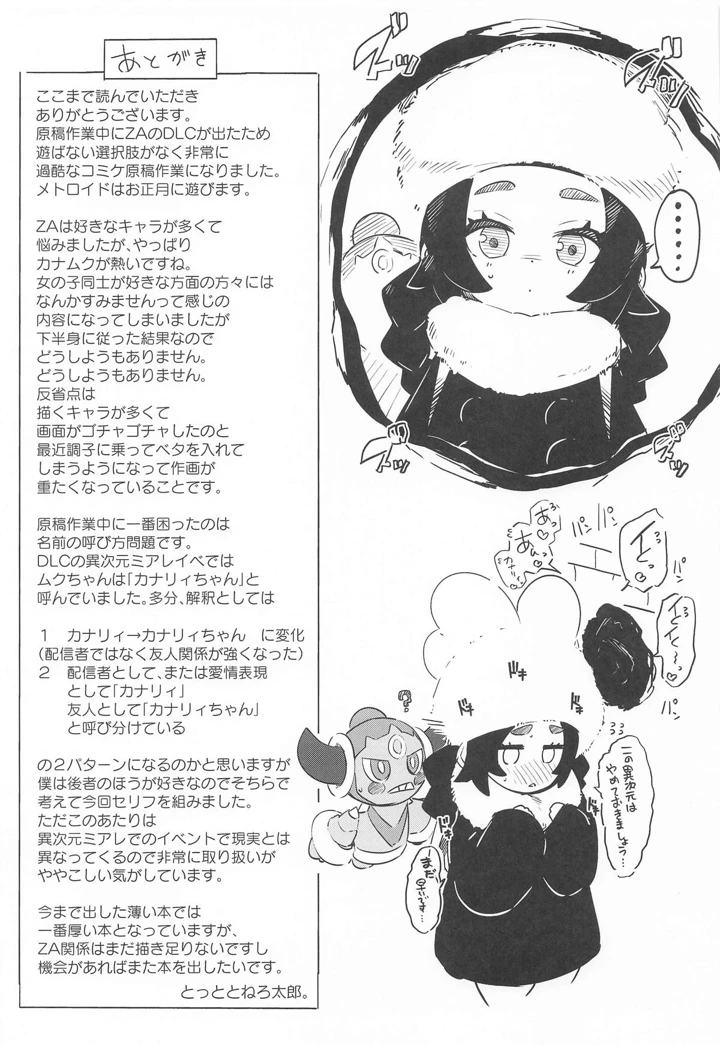 あとがき
ここまで読んでいただき
ありがとうございます。
原稿作業中にZAのDLCが出たため
遊ばない選択肢がなく非常に
過酷なコミケ原稿作業になりました。
メトロイドはお正月に遊びます。
ZAは好きなキャラが多くて
悩みましたが、やっぱり
カナムクが熱いですね。
女の子同士が好きな方面の方々には
なんかすみませんって感じの
内容になってしまいましたが
下半身に従った結果なので
どうしようもありません。
どうしようもありません。
反省点は
描くキャラが多くて
画面がゴチャゴチャしたのと
最近調子に乗ってベタを入れて
しまうようになって作画が
重たくなっていることです。
原稿作業中に一番困ったのは
名前の呼び方問題です。
DLCの異次元ミアレイベでは
ムクちゃんは「カナリィちゃん」と
呼んでいました。多分、解釈としては
1 カナリィ→カナリィちゃん に変化
(配信者ではなく友人関係が強くなった)
2 配信者として、または愛情表現
として「カナリィ」
友人として「カナリィちゃん」
と呼び分けている
の2パターンになるのかと思いますが
僕は後者のほうが好きなのでそちらで
考えて今回セリフを組みました。
ただこのあたりは
異次元ミアレでのイベントで現実とは
異なってくるので非常に取り扱いが
ややこしい気がしています。
今まで出した薄い本では
一番厚い本となっていますが、
ZA関係はまだ描き足りないですし
機会があればまた本を出したいです。
とっととねろ太郎。
ズズズ
ズズズ
ゴゴッ
・・・・・・
パン
パン
パン
パン
あっ♡
あん♡
イく♡
ドキ
ドキ
ドキ
ドキ
?
この異次元は
やめておきましょう…
まだ
早いです…